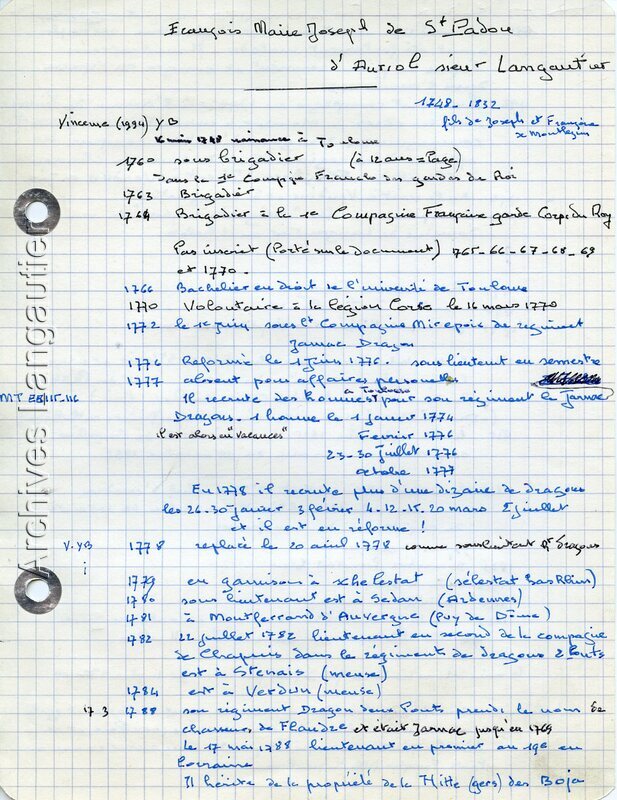 François Marie Joseph de St Padou
d'Auriol sieur Langautier
1748-1832
fils de Joseph et Françoise
de Montlezun
Vincennes (1994) YB
6 mois 1748 naissance à Toulouse
1760 sous brigadier (à 12 ans = Page)
dans la 1e Compagie Franche des gardes du Roi
1763 Brigadier
1764 Brigadier à la 1e Compagnie Française garde Corps du Roy
Pas inscrit (Porté sur le document) 765-66-67-68-69
et 1770.
1766 Bachelier en droit de l'université de Toulouse
1770 Volontaire à la légion Corse le 16 mars 1770
1772 le 1e juin sous lt Compagnie Mirepoix de régiment
Jarnac Dragon
1776 Réformé le 1 juin 1776. sous lieutenant en semestre
1777 absent pour affaires personnelles
à Toulouse
MT EE/115-116 Il recrute des hommes pour son régiment le Jarnac
Dragons. 1 homme le 1 janvier 1774
il est alors en "vacances" Fevrier 1776
23-30 juillet 1776
octobre 1777
En 1778 il recrute plus d'une dizaine de dragons
les 26.30 janvier 3 février 4.12.15.20 mars 5 juillet
et il est en réforme !
V.YB 1778 replacé le 20 avril 1778 comme sous lieutenant Dragons
1779 en garnison à Schelestat (sélestat Bas Rhin)
1780 sous lieutenant est à Sedan (Ardennes)
1781 à Montferrand d'Auvergne (Puy de Dôme)
1782 22 juillet 1782 lieutenant en second de la compagnie
de Chapuis dans le régiments de dragons 2 Ponts
est à Stenais (meuse)
1784 est à Verdun (meuse)
17 3 1788 son régiment Dragon deux Ponts prend le nom de
chasseurs de Flandre et était Jarnac jusqu'en 1769
le 17 mai 1788 lieutenant en premier au 19e en
Lorraine
Il hérite de la propriété de la Hitte (gers) des Boja
Archives Langautier